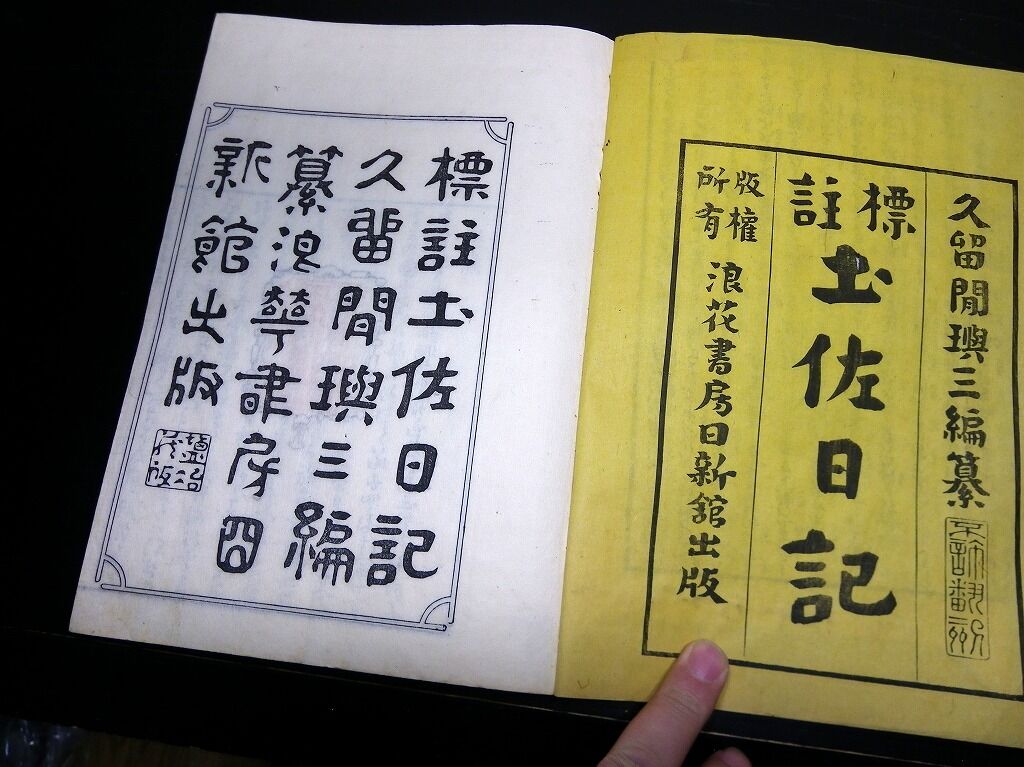 久留閒璵三編纂
不許翻刻
標註
土佐日記
版權所有
浪花書房日新舘出版
標註土佐日記
久留閒璵三編
纂浪華書房日
新館出版